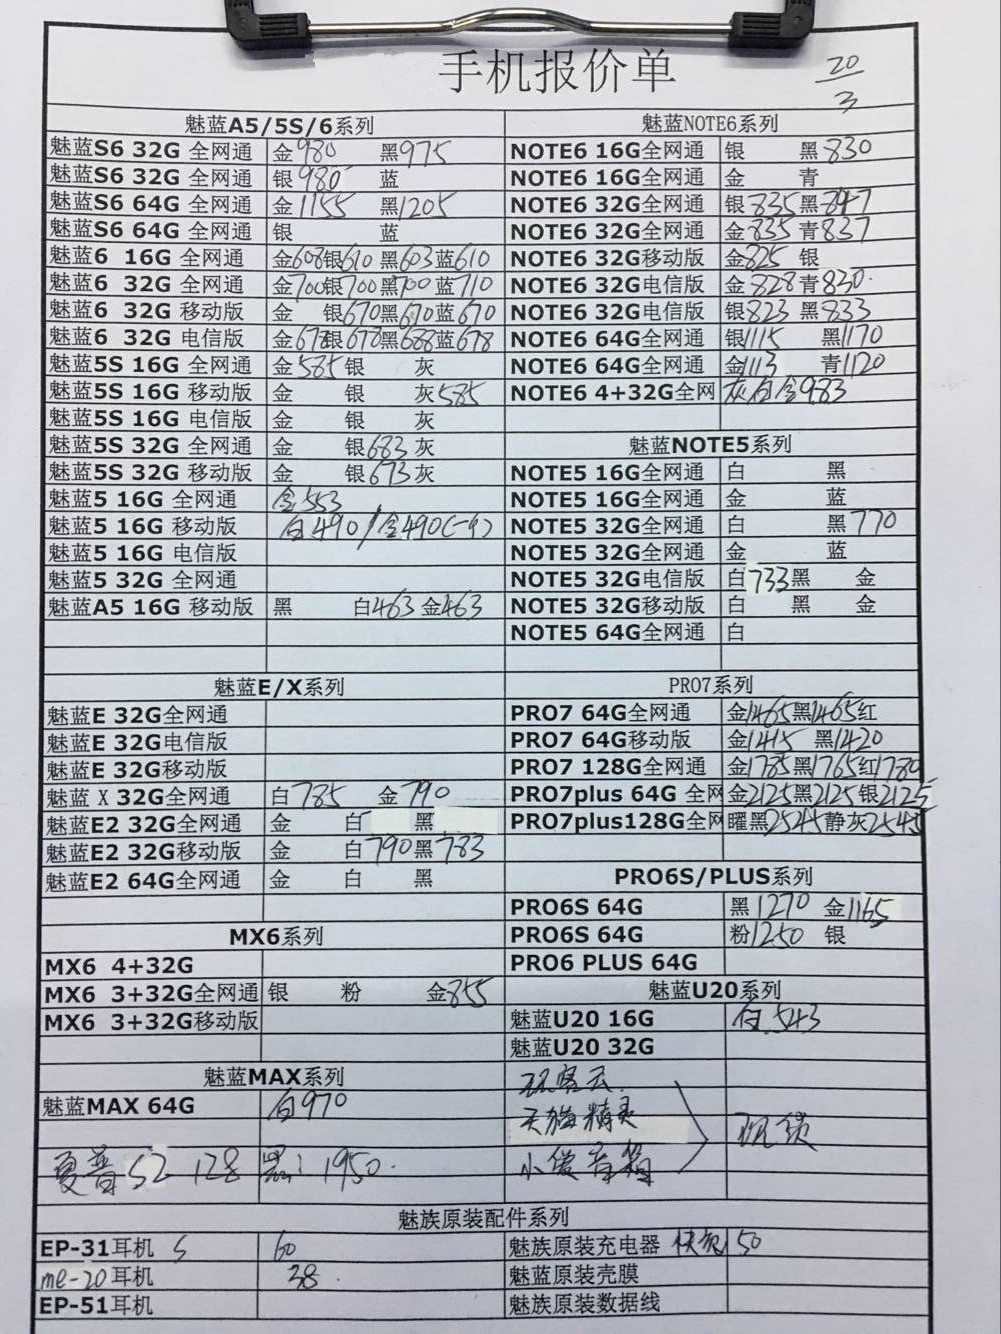 手机报价单
20/3
魅蓝A5/5S/6系列
魅蓝S6 32G 全网通 金980 黑975
魅蓝S6 32G 全网通 银980 蓝
魅蓝S6 64G 全网通 金1155 黑1205
魅蓝S6 64G 全网通 银 蓝
魅蓝6 16G 全网通 金608银610 黑603蓝610
魅蓝6 32G 全网通 金700银700黑700 蓝710
魅蓝6 32G 移动版 金 银670黑670蓝670
魅蓝6 32G 电信版 金678银678黑688蓝678
魅蓝5S 16G 全网通 金585银 灰
魅蓝5S 16G 移动版 金 银 灰585
魅蓝5S 16G 电信版 金 银 灰
魅蓝5S 32G 全网通 金 银683灰
魅蓝5S 32G 移动版 金 银673灰
魅蓝5 16G 全网通 金553
魅蓝5 16G 移动版 白490/金490
魅蓝5 16G 电信版
魅蓝5 32G 全网通
魅蓝A5 16G 移动版 黑 白463 金463
魅蓝E/X系列
魅蓝E 32G全网通
魅蓝E 32G电信版
魅蓝E 32G移动版
魅蓝X 32G全网通 白785 金790
魅蓝E2 32G全网通 金 白 黑
魅蓝E2 32G移动版 金 白790黑783
魅蓝E2 64G全网通 金 白 黑
MX6系列
MX6 4+32G
MX6 3+32G全网通 银 粉 金855
MX6 3+32G移动版
魅蓝MAX系列
魅蓝MAX 64G 白970
夏普S2 128 黑: 1950.
魅蓝NOTE6系列
NOTE6 16G全网通 银 黑830
NOTE6 16G全网通 金 青
NOTE6 32G全网通 银835黑847
NOTE6 32G全网通 金835 青837
NOTE6 32G移动版 金825 银
NOTE6 32G电信版 金828青830.
NOTE6 32G电信版 银823 黑833
NOTE6 64G全网通 银1115 黑1170
NOTE6 64G全网通 金1113 青1120
NOTE6 4+32G全网 灰白金983
魅蓝NOTE5系列
NOTE5 16G全网通 白 黑
NOTE5 16G全网通 金 蓝
NOTE5 32G全网通 白 黑770
NOTE5 32G全网通 金 蓝
NOTE5 32G电信版 白733黑 金
NOTE5 32G移动版 白 黑 金
NOTE5 64G全网通 白
PRO7系列
PRO7 64G全网通 金1465黑1465红
PRO7 64G移动版 金1415 黑1420
PRO7 128G全网通 金1785黑1765红1780
PRO7plus 64G 全网 金2125黑2125银2125
PRO7plus128G全网 曜黑2545静灰2545
PRO6S/PLUS系列
PRO6S 64G 黑1270 金1165
PRO6S 64G 粉1250 银
PRO6 PLUS 64G
魅蓝U20系列
魅蓝U20 16G 白.543
魅蓝U20 32G
玩客云.
天猫精灵
小爱音箱
现货
魅族原装配件系列
EP-31耳机 S 60
me-20耳机 38.
EP-51耳机
魅族原装充电器 快充 50
魅蓝原装壳膜
魅族原装数据线